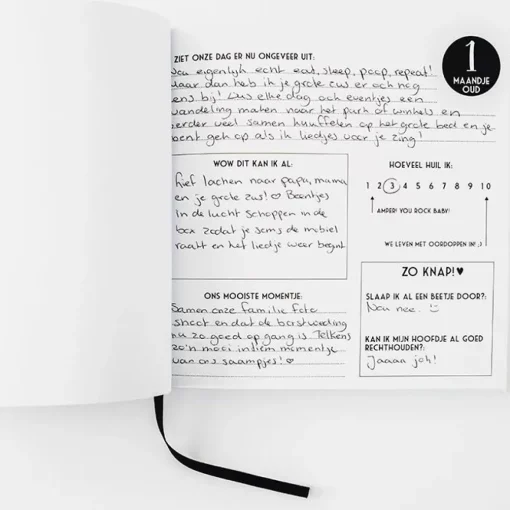 ZIET ONZE DAG ER NU ONGEVEER UIT:
Nou eigenlijk echt eat, sleep, poop, repeat!
Maar dan heb ik je grote zus er ook nog
ens bij! Dus elke dag och eventjes een
wandeling maken naar het park of winkels en
verder veel samen knuffelen op het grote bed en je
bent gek op als ik liedjes voor je zing!
1
MAANDJE
OUD
WOW DIT KAN IK AL:
hief lachen naar papa, mama
en je grote zus! ♡ Beentjes
in de lucht schoppen in de
box zodat je soms de mobiel
raakt en het liedje weer begint
HOEVEEL HUIL IK:
1 2 3 4 5 6 7 8 9 10
AMPER! YOU ROCK BABY!
WE LEVEN MET OORDOPPEN IN! ;)
ONS MOOISTE MOMENTJE:
Samen onze familie foto
shoot en dat de borstvoeding
nu zo goed op gang is. Telkens
zo'n mooi intiem momentje
van ons saampjes! ♡
ZO KNAP! ♥
SLAAP IK AL EEN BEETJE DOOR?:
Nou nee. :)
KAN IK MIJN HOOFDJE AL GOED
RECHTHOUDEN?:
Jaaaa joh!